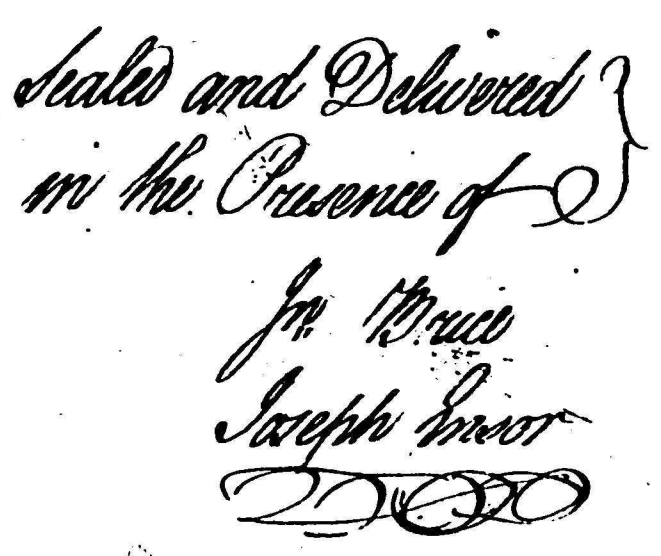 Sealed and Delivered
in the Presence of
Jn. Brice
Joseph Ensor